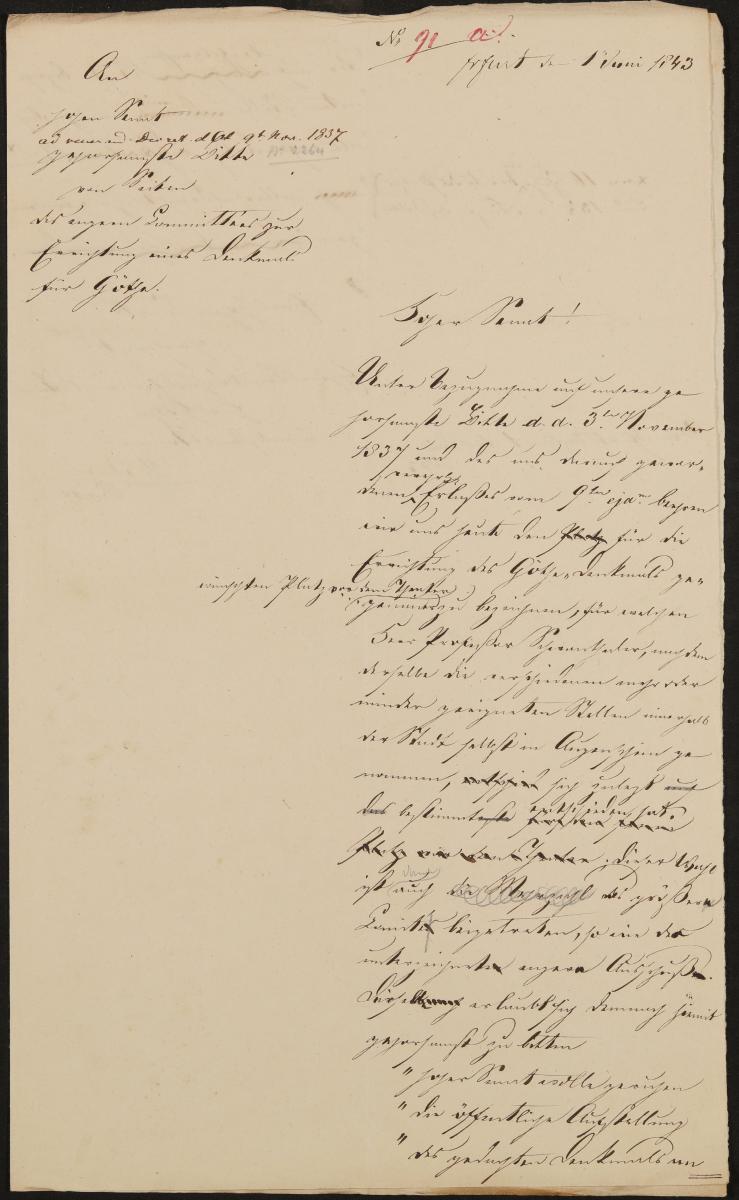 No 91 a.
Frfurt den 1 Juni 1843
An
hohen Senat
ad venerand. Decret. d Gbl 9t Nov. 1837
gehorsamste Bitte
von Seiten
des engern Committées zur
Errichtung eines Denkmals
für Göthe.
Hoher Senat!
Unter Bezugnahme auf unsere ge
horsamste Bitte d. d. 3ten November
1837 und des uns darauf gewor-
denen verehrl. Erlasses vom 9ten ejdm beehren
wir uns heute den Platz für die
Errichtung des Göthe-Denkmals ge-
wünschten Platz vor dem Theater
zu bezeichnen, für welchen
Herr Professor Schwanthaler, nachdem
derselbe die verschiedenen mehr oder
minder geeigneten Stellen innerhalb
der Stadt selbst in Augenschein ge
nommen, entschied sich zuletzt und
das bestimmteste entschieden hat.
Platz vor dem Theater, dieser Wahl
ist auch dann die Mehrzahl des größern
Comités beigetreten, so wie der
unterzeichnete engere Ausschuß.
Derselbe erlaubt sich demnach hiermit
gehorsamst zu bitten
" hoher Senat wolle geruhen
" die öffentliche Aufstellung
" des gedachten Denkmals an